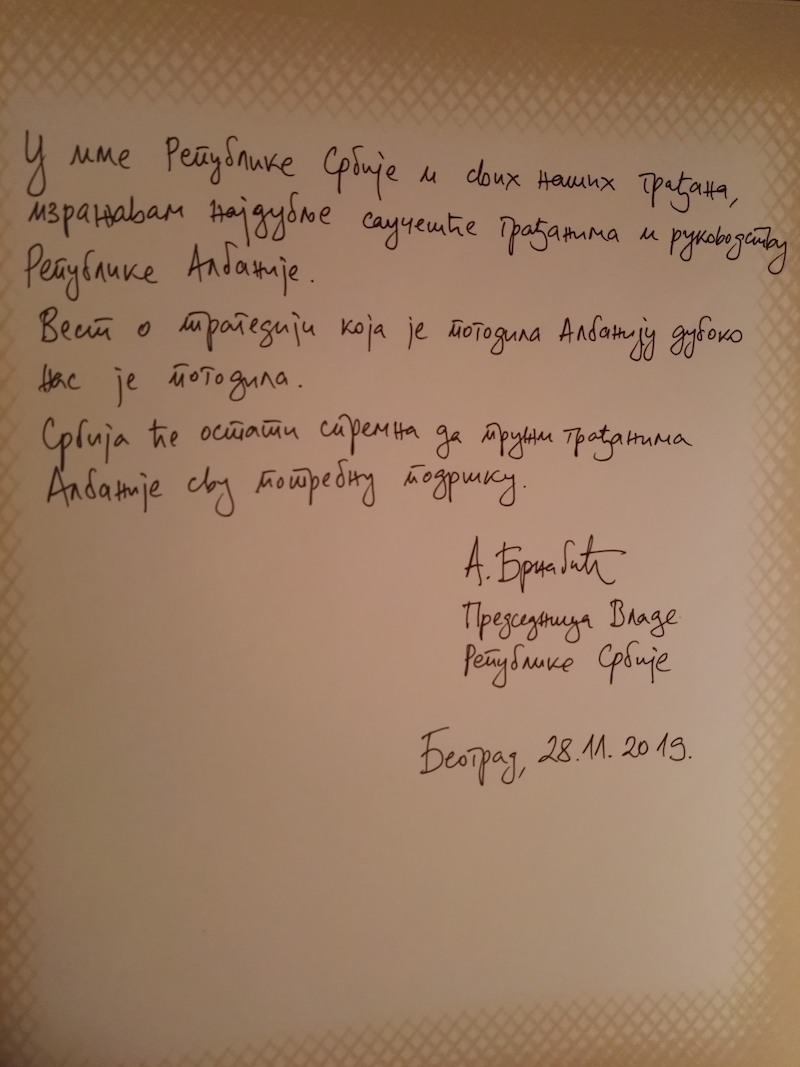 У име Републике Србије и свих наших грађана,
изражавам најдубље саучешће грађанима и руководству
Републике Албаније.
Вест о трагедији која је погодила Албанију дубоко
нас је погодила.
Србија ће остати спремна да пружи грађанима
Албаније сву потребну подршку.
А. Брнабић
Председница Владе
Републике Србије
Београд, 28.11.2019.